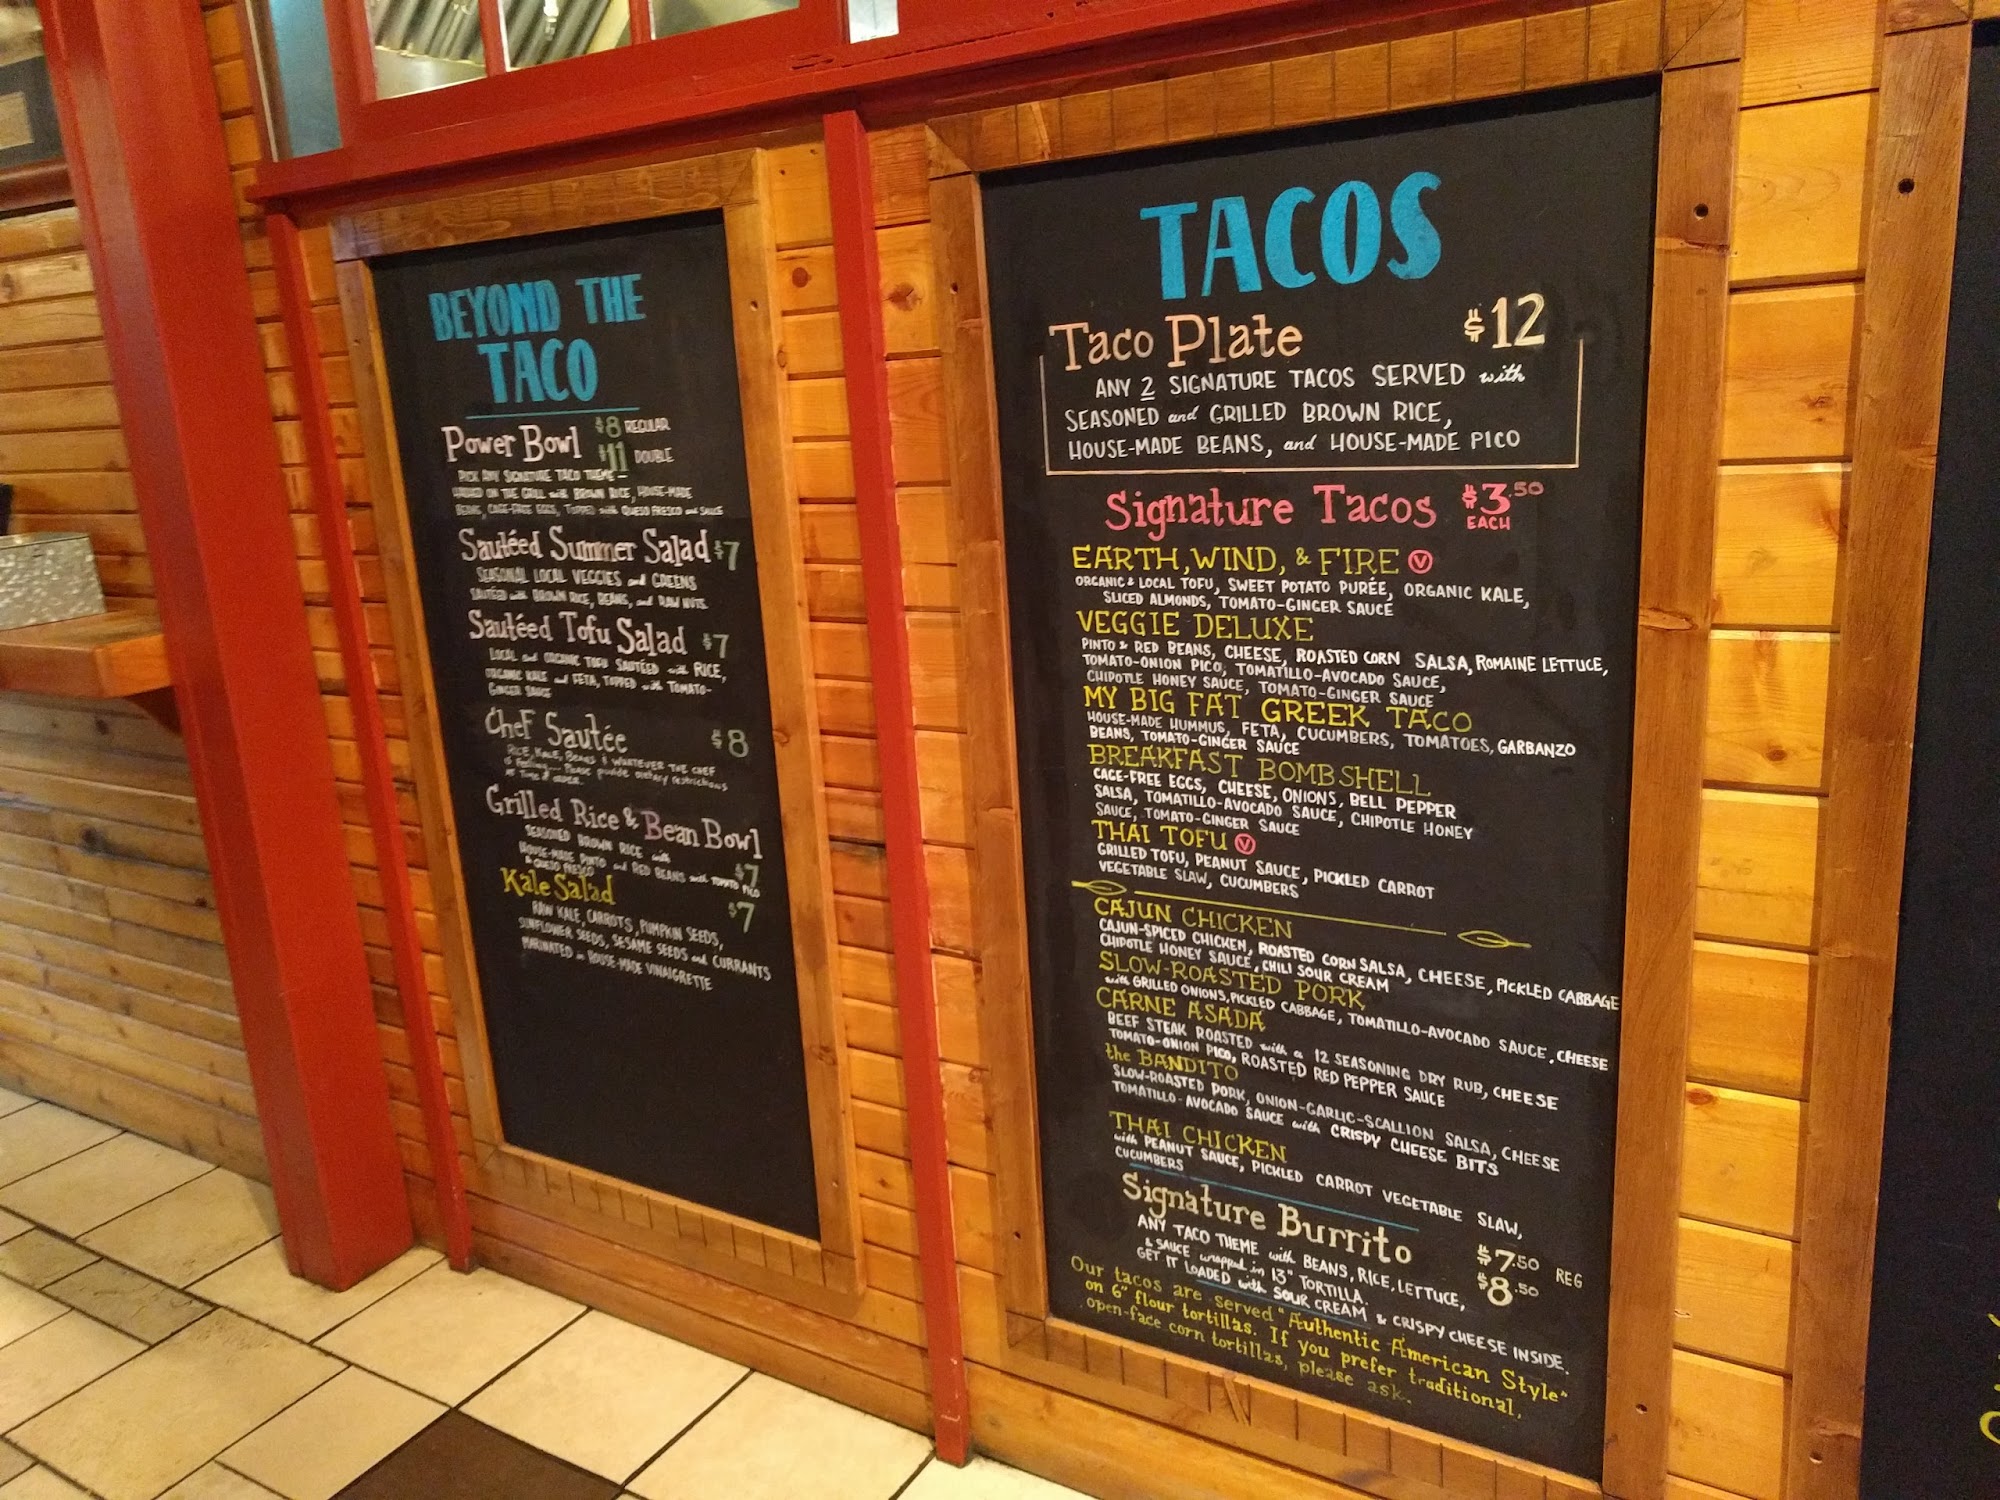 BEYOND THE
TACO
Power Bowl $8 REGULAR
$11 DOUBLE
PICK ANY SIGNATURE TACO THEME —
ON THE GRILL with BROWN RICE, HOUSE-MADE
BEANS, CAGE-FREE EGGS, TOPPED with QUESO FRESCO and SAUCE
Sautéed Summer Salad $7
SEASONAL LOCAL VEGGIES and GREENS
SAUTÉED with BROWN RICE, BEANS, and RAW NUTS.
Sautéed Tofu Salad $7
LOCAL and ORGANIC TOFU SAUTÉED with RICE,
ORGANIC KALE and FETA, TOPPED with TOMATO-
GINGER SAUCE
Chef Sautée $8
RICE, KALE, BEANS & WHATEVER THE CHEF
is feeling... Please provide dietary restrictions
AT TIME of ORDER.
Grilled Rice & Bean Bowl
SEASONED BROWN RICE with $7
HOUSE-MADE PINTO and RED BEANS with TOMATO PICO
& QUESO FRESCO
Kale Salad $7
RAW KALE, CARROTS, PUMPKIN SEEDS,
SUNFLOWER SEEDS, SESAME SEEDS and CURRANTS
MARINATED in HOUSE-MADE VINAIGRETTE
TACOS
Taco Plate $12
ANY 2 SIGNATURE TACOS SERVED with
SEASONED and GRILLED BROWN RICE,
HOUSE-MADE BEANS, and HOUSE-MADE PICO
Signature Tacos $3.50
EACH
EARTH, WIND, & FIRE V
ORGANIC & LOCAL TOFU, SWEET POTATO PURÉE, ORGANIC KALE,
SLICED ALMONDS, TOMATO-GINGER SAUCE
VEGGIE DELUXE
PINTO & RED BEANS, CHEESE, ROASTED CORN SALSA, ROMAINE LETTUCE,
TOMATO-ONION PICO, TOMATILLO-AVOCADO SAUCE,
CHIPOTLE HONEY SAUCE, TOMATO-GINGER SAUCE
MY BIG FAT GREEK TACO
HOUSE-MADE HUMMUS, FETA, CUCUMBERS, TOMATOES, GARBANZO
BEANS, TOMATO-GINGER SAUCE
BREAKFAST BOMBSHELL
CAGE-FREE EGGS, CHEESE, ONIONS, BELL PEPPER
SALSA, TOMATILLO-AVOCADO SAUCE, CHIPOTLE HONEY
SAUCE, TOMATO-GINGER SAUCE
THAI TOFU V
GRILLED TOFU, PEANUT SAUCE, PICKLED CARROT
VEGETABLE SLAW, CUCUMBERS
CAJUN CHICKEN
CAJUN-SPICED CHICKEN, ROASTED CORN SALSA, CHEESE, PICKLED CABBAGE
CHIPOTLE HONEY SAUCE, CHILI SOUR CREAM
SLOW-ROASTED PORK
with GRILLED ONIONS, PICKLED CABBAGE, TOMATILLO-AVOCADO SAUCE, CHEESE
CARNE ASADA
BEEF STEAK ROASTED with a 12 SEASONING DRY RUB, CHEESE
TOMATO-ONION PICO, ROASTED RED PEPPER SAUCE
the BANDITO
SLOW-ROASTED PORK, ONION-GARLIC-SCALLION SALSA, CHEESE
TOMATILLO-AVOCADO SAUCE with CRISPY CHEESE BITS
THAI CHICKEN
with PEANUT SAUCE, PICKLED CARROT VEGETABLE SLAW,
CUCUMBERS
Signature Burrito
ANY TACO THEME with BEANS, RICE, LETTUCE, $7.50 REG
& SAUCE wrapped in 13" TORTILLA. $8.50
GET IT LOADED with SOUR CREAM & CRISPY CHEESE INSIDE.
Our tacos are served "Authentic American Style"
on 6" flour tortillas. If you prefer traditional,
open-face corn tortillas, please ask.